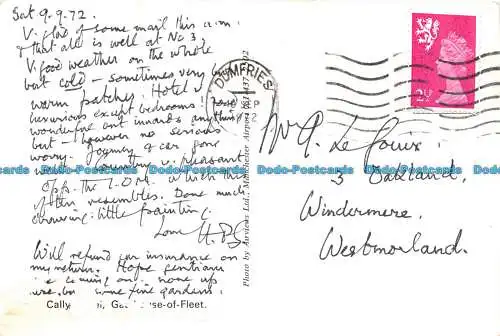 Sat 9.9.72.
V. glad of some mail this a.m.
& that all is well at No 3,
V. good weather on the whole
but cold - sometimes very
warm patches. Hotel
luxurious except bedrooms!
wonderful but innards anything
but - however no serious
worry. Journey & car
Country v. pleasant
opp. the I.O.M. which this
often resembles. Done much
drawing, little painting.
Love
Will refund car insurance on
my return. Hope gentians
coming on - none up
here, but some fine gardens.
Cally Gatehouse-of-Fleet.
Photo by Airviews Ltd., Manchester Airport.
DUMFRIES
SEP
2½
Le Gouix.
3 Oakland,
Windermere.
Westmorland.
Dodo-Postcards Dodo-Postcards Dodo-Postcards Dodo-Postcards
Dodo-Postcards Dodo-Postcards Dodo-Postcards Dodo-Postcards